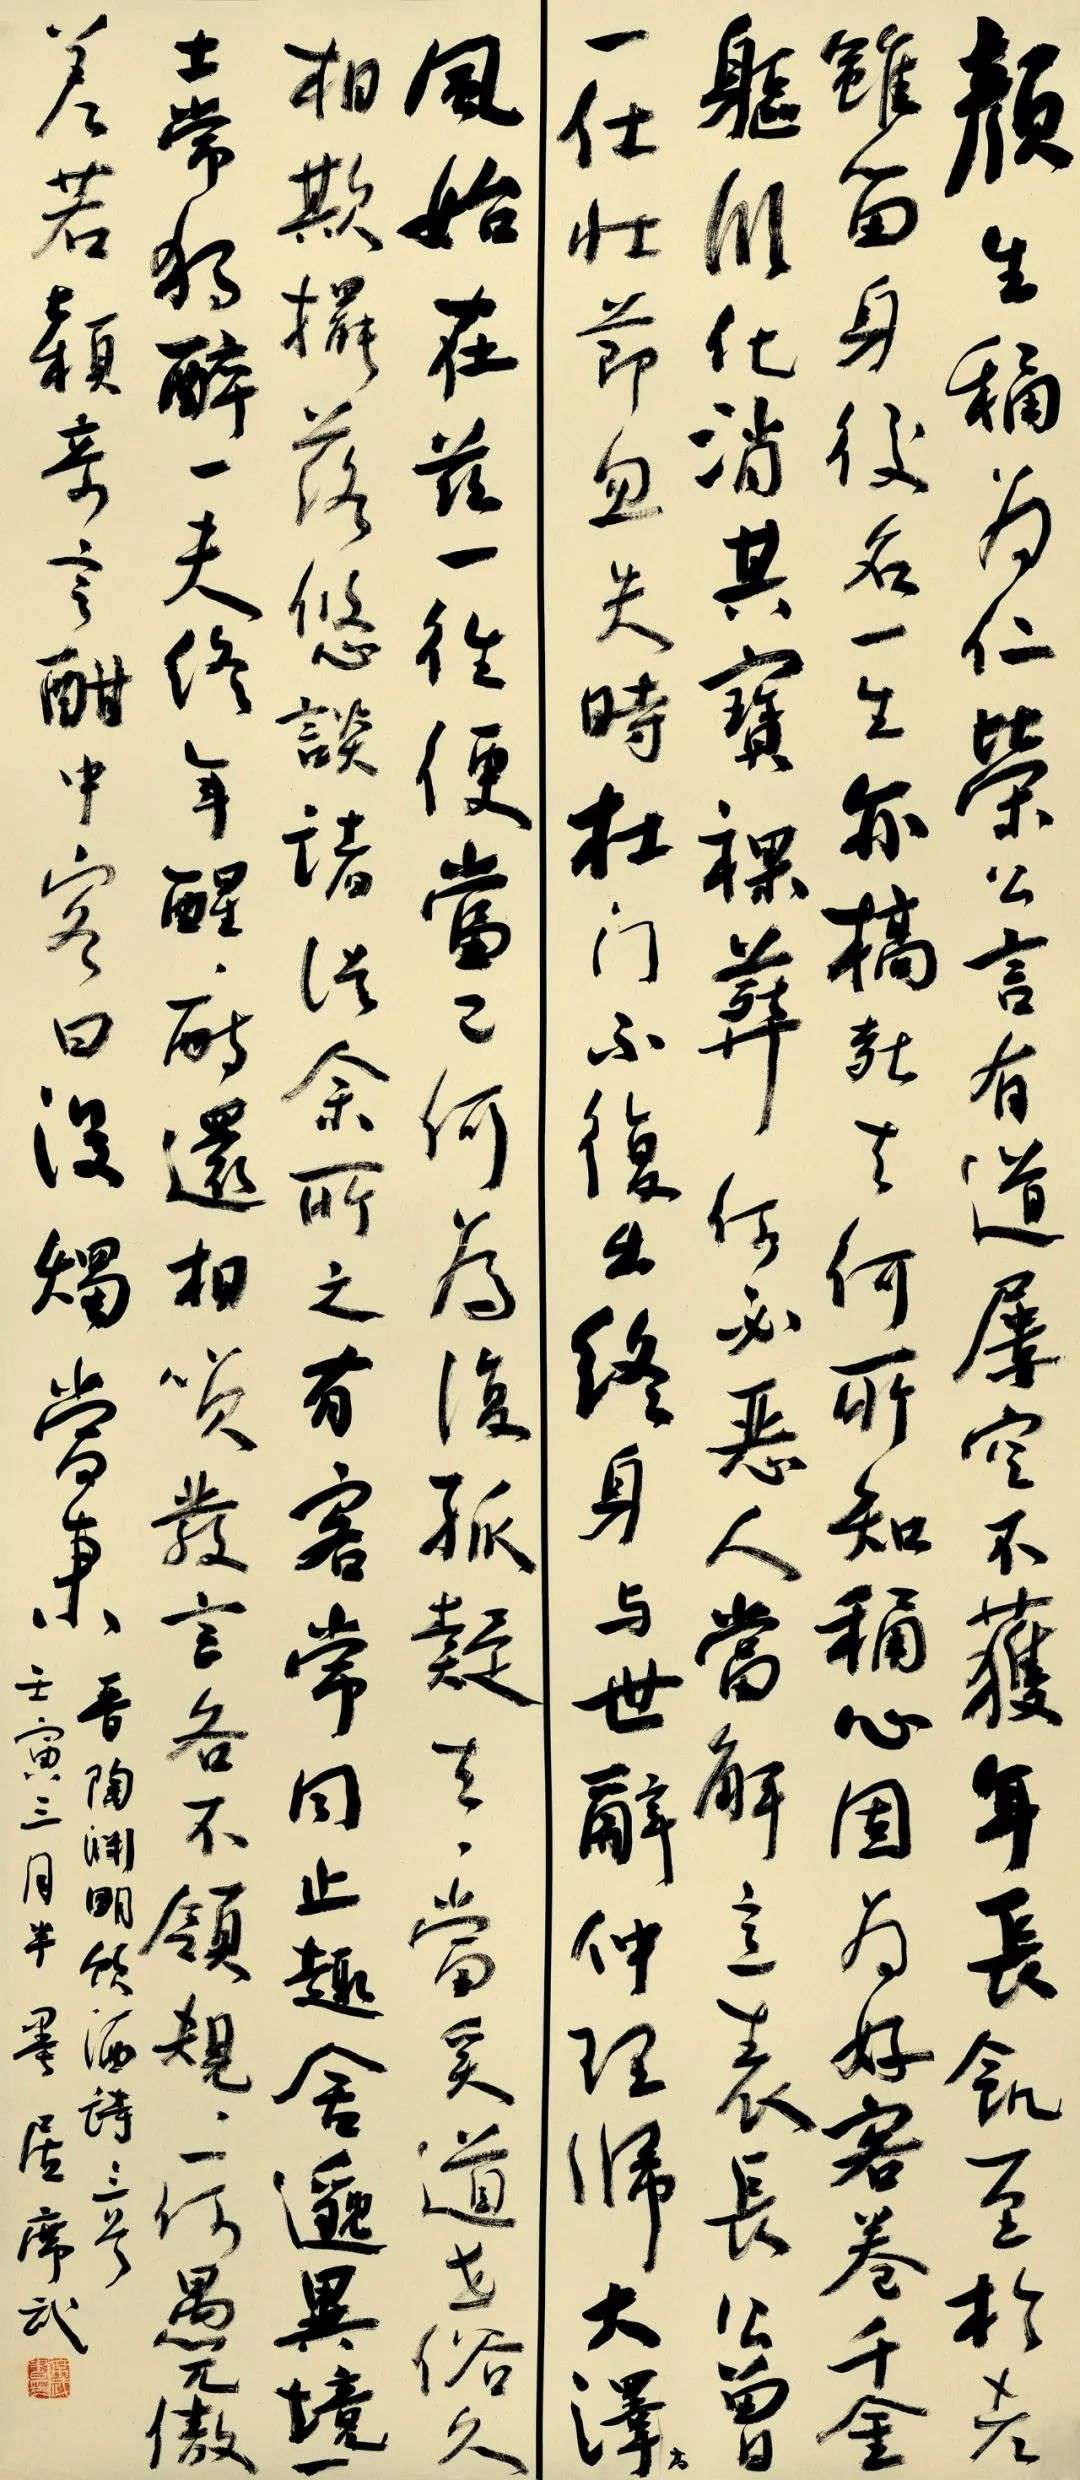 顏生稱为仁榮公言有道屢空不獲年長飢至於老
雖留身後名一生亦槁死去何所知稱心固为好客養千金
軀臨化消其寶裸葬何必惡人當解意表長公曾
一仕壮節忽失時杜门不復出終身与世辭仲理歸大澤高
風始在茲一往便當已何為復狐疑去去當奚道世俗久
相欺擺落悠悠談請從余所之有客常同止趣舍邈異境一
士常獨醉一夫終年醒醒醉還相笑發言各不領規規一何愚兀傲
差若穎寄言酣中客日没燭當秉
晋陶渊明飲酒詩三首
壬寅三月半墨居席武